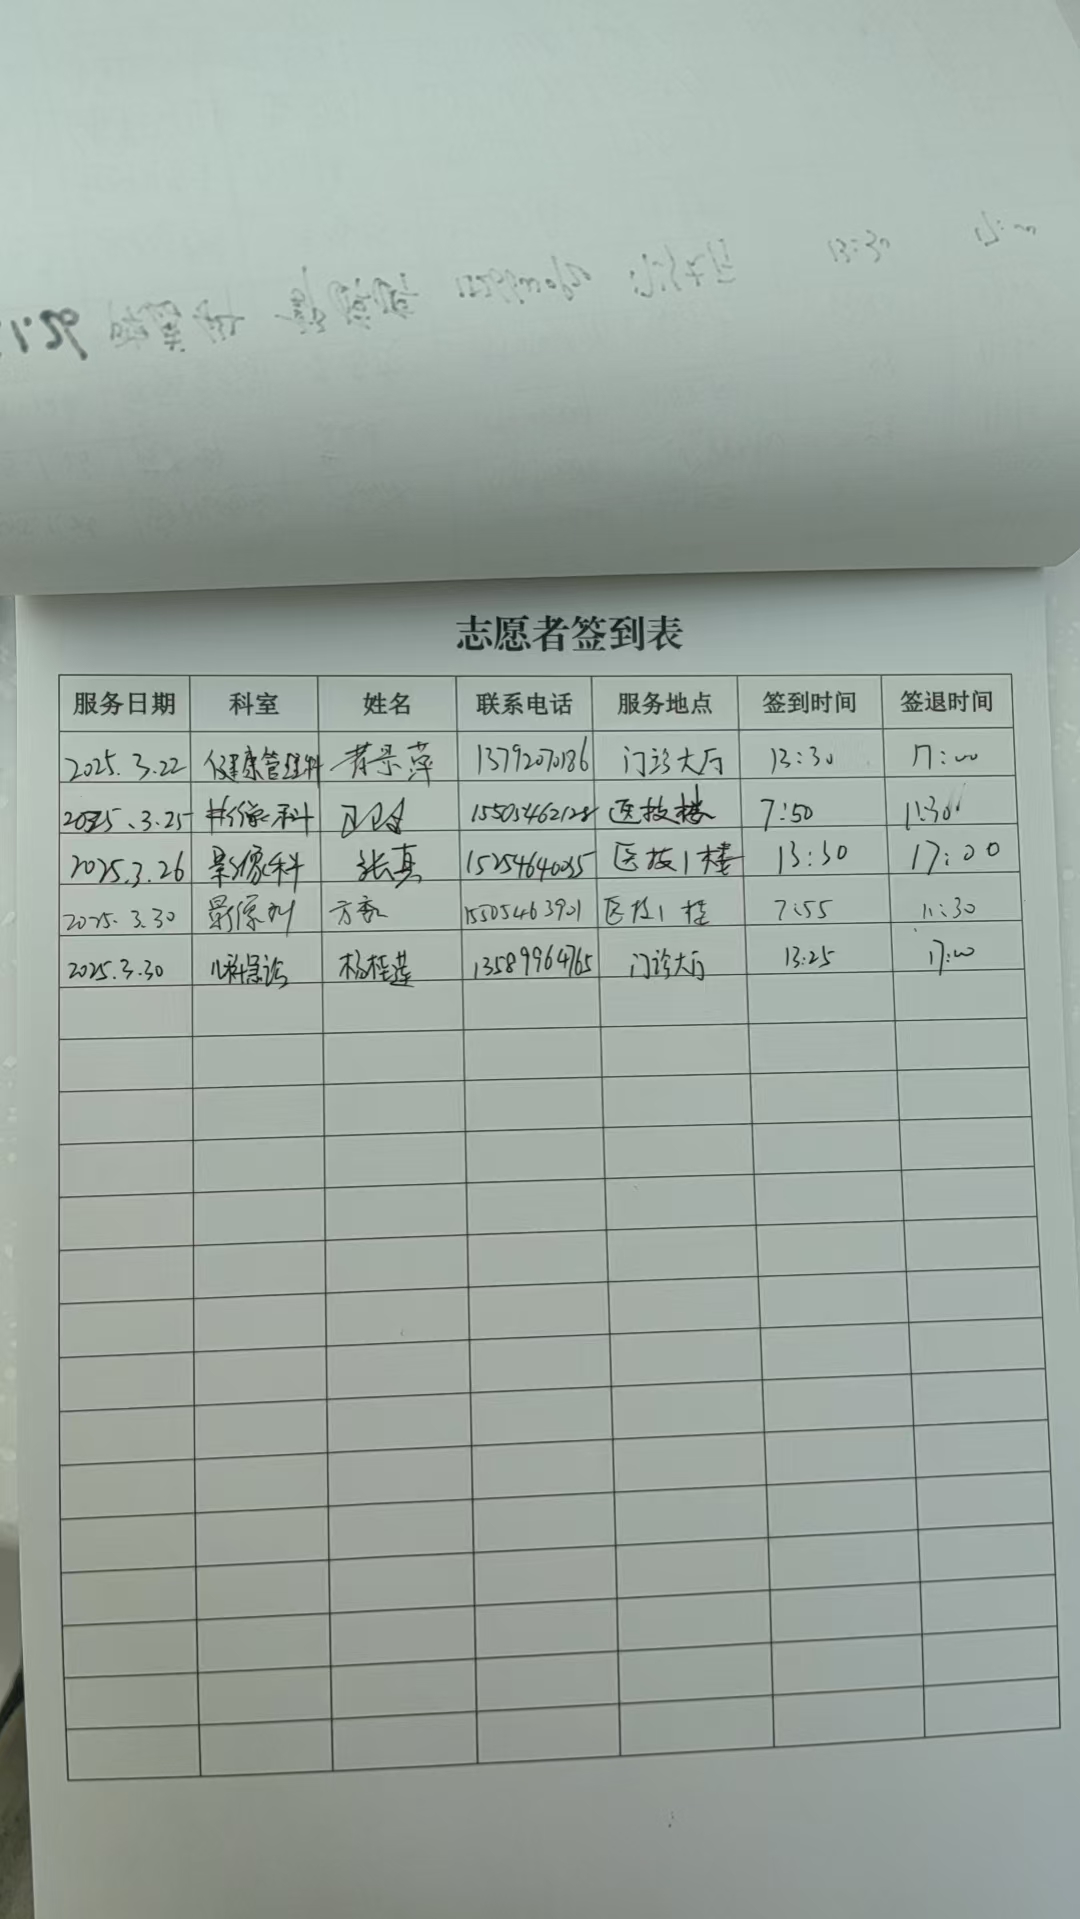 13:30 17:00
志愿者签到表
服务日期 科室 姓名 联系电话 服务地点 签到时间 签退时间
2025.3.22 健康管理科 景萍 13792070186 门诊大厅 13:30 17:00
2025.3.25 影像科 15505462128 医技楼 7:50 11:30
2025.3.26 影像科 张真 15254640035 医技1楼 13:30 17:00
2025.3.30 影像科 方 15505463901 医技1楼 7:55 11:30
2025.3.30 儿科急诊 杨桂莲 13589964765 门诊大厅 13:25 17:00